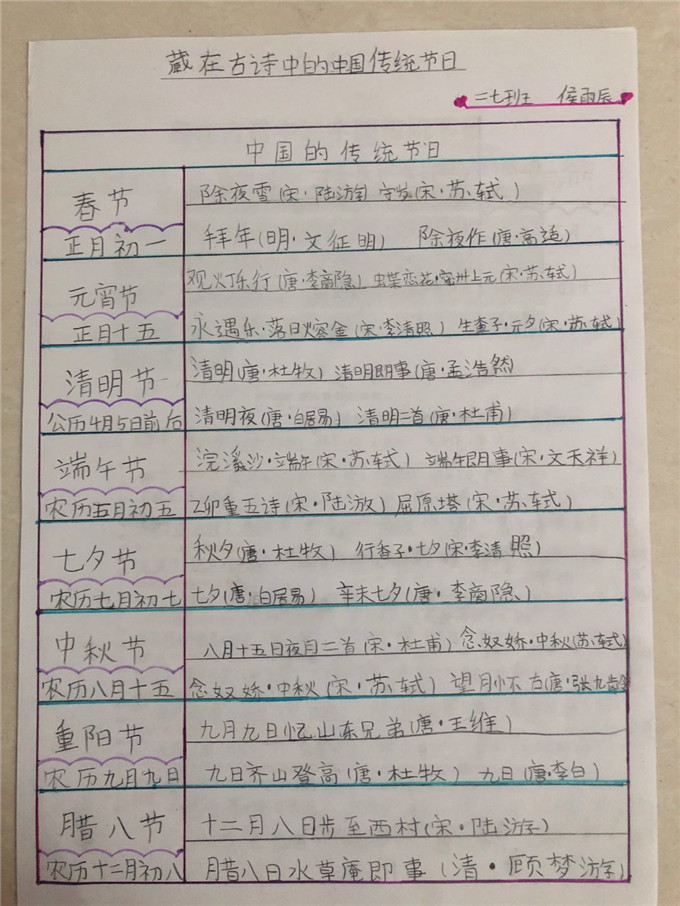 藏在古诗中的中国传统节日
二七班 侯雨辰
中国的传统节日
春节
除夜雪(宋·陆游) 守岁(宋·苏轼)
正月初一
拜年(明·文征明) 除夜作(唐·高适)
元宵节
观灯乐行(唐·李商隐) 蝶恋花·密州上元(宋·苏轼)
正月十五
永遇乐·落日熔金(宋·李清照) 生查子·元夕(宋·苏轼)
清明节
清明(唐·杜牧) 清明即事(唐·孟浩然)
公历4月5日前后
清明夜(唐·白居易) 清明二首(唐·杜甫)
端午节
浣溪沙·端午(宋·苏轼) 端午即事(宋·文天祥)
农历五月初五
乙卯重五诗(宋·陆游) 屈原塔(宋·苏轼)
七夕节
秋夕(唐·杜牧) 行香子·七夕(宋·李清照)
农历七月初七
七夕(唐·白居易) 辛未七夕(唐·李商隐)
中秋节
八月十五日夜月二首(宋·杜甫) 念奴娇·中秋(苏轼)
农历八月十五
念奴娇·中秋(宋·苏轼) 望月怀古(唐·张九龄)
重阳节
九月九日忆山东兄弟(唐·王维)
农历九月九日
九日齐山登高(唐·杜牧) 九日(唐·李白)
腊八节
十二月八日步至西村(宋·陆游)
农历十二月初八
腊八日水草庵即事(清·顾梦游)